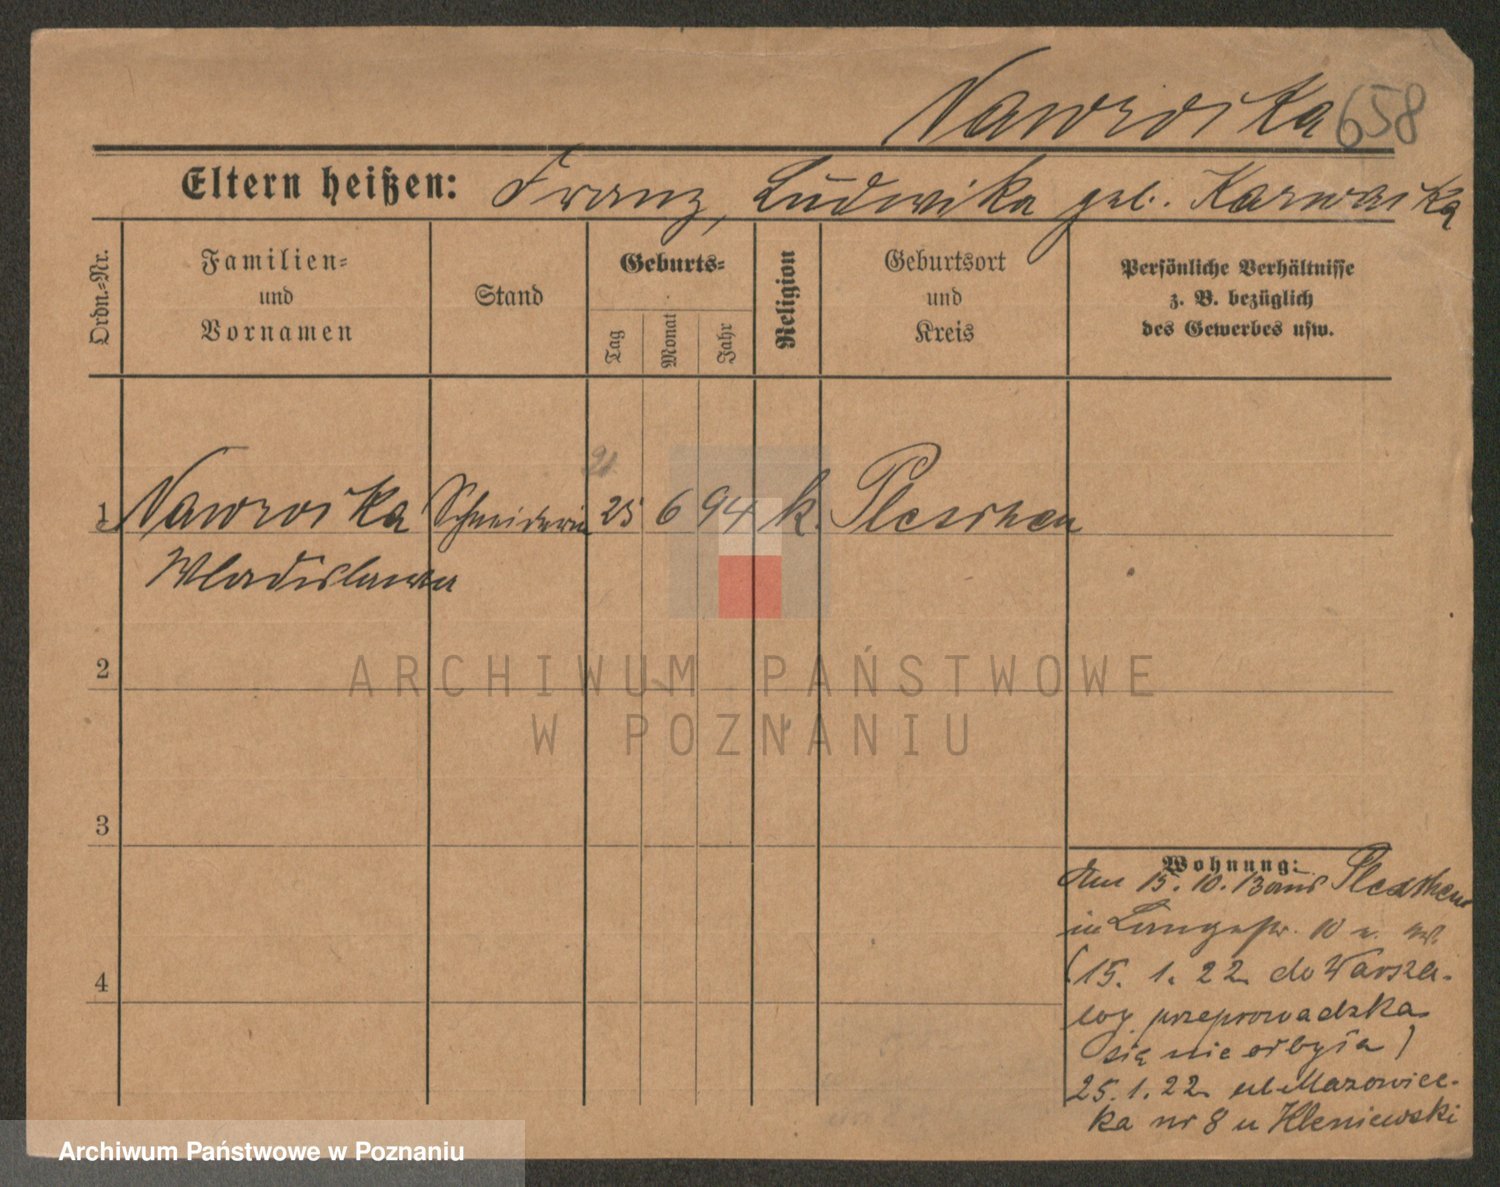 Nawrocka 658
Eltern heißen: Franz, Ludwika geb.
Ordn.-Nr.
Familien-
und
Vornamen
Stand
Geburts-
Tag
Monat
Jahr
Religion
Geburtsort
und
Kreis
Persönliche Verhältnisse
z. B. bezüglich
des Gewerbes usw.
21.
1 Nawrocka Schneiderin 25 6 94 k. Pleschen
Wladislawa
2
3
4
Wohnung:
den 15. 10. 13 aus Pleschen
in Langestr. 10 u.
(15. 1. 22 do Warsza-
wy przeprowadzka
się nie odbyła)
25. 1. 22 ul Mazowiec-
ka nr 8 u Kleniewski
ARCHIWUM PAŃSTWOWE
W POZNANIU
Archiwum Państwowe w Poznaniu